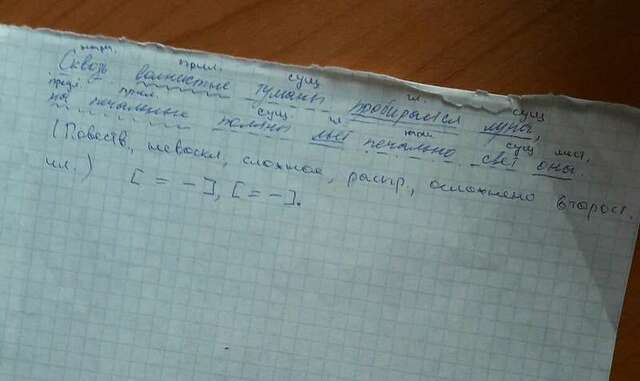 нареч. прил. сущ гл. сущ
Сквозь волнистые туманы пробирается луна,
предл. прил. сущ. гл нар. сущ мест.
на печальные поляны льёт печально свет она.
(Повеств., невоскл, сложное, распр., осложнено второст.
чл.) [ = - ], [ = - ].